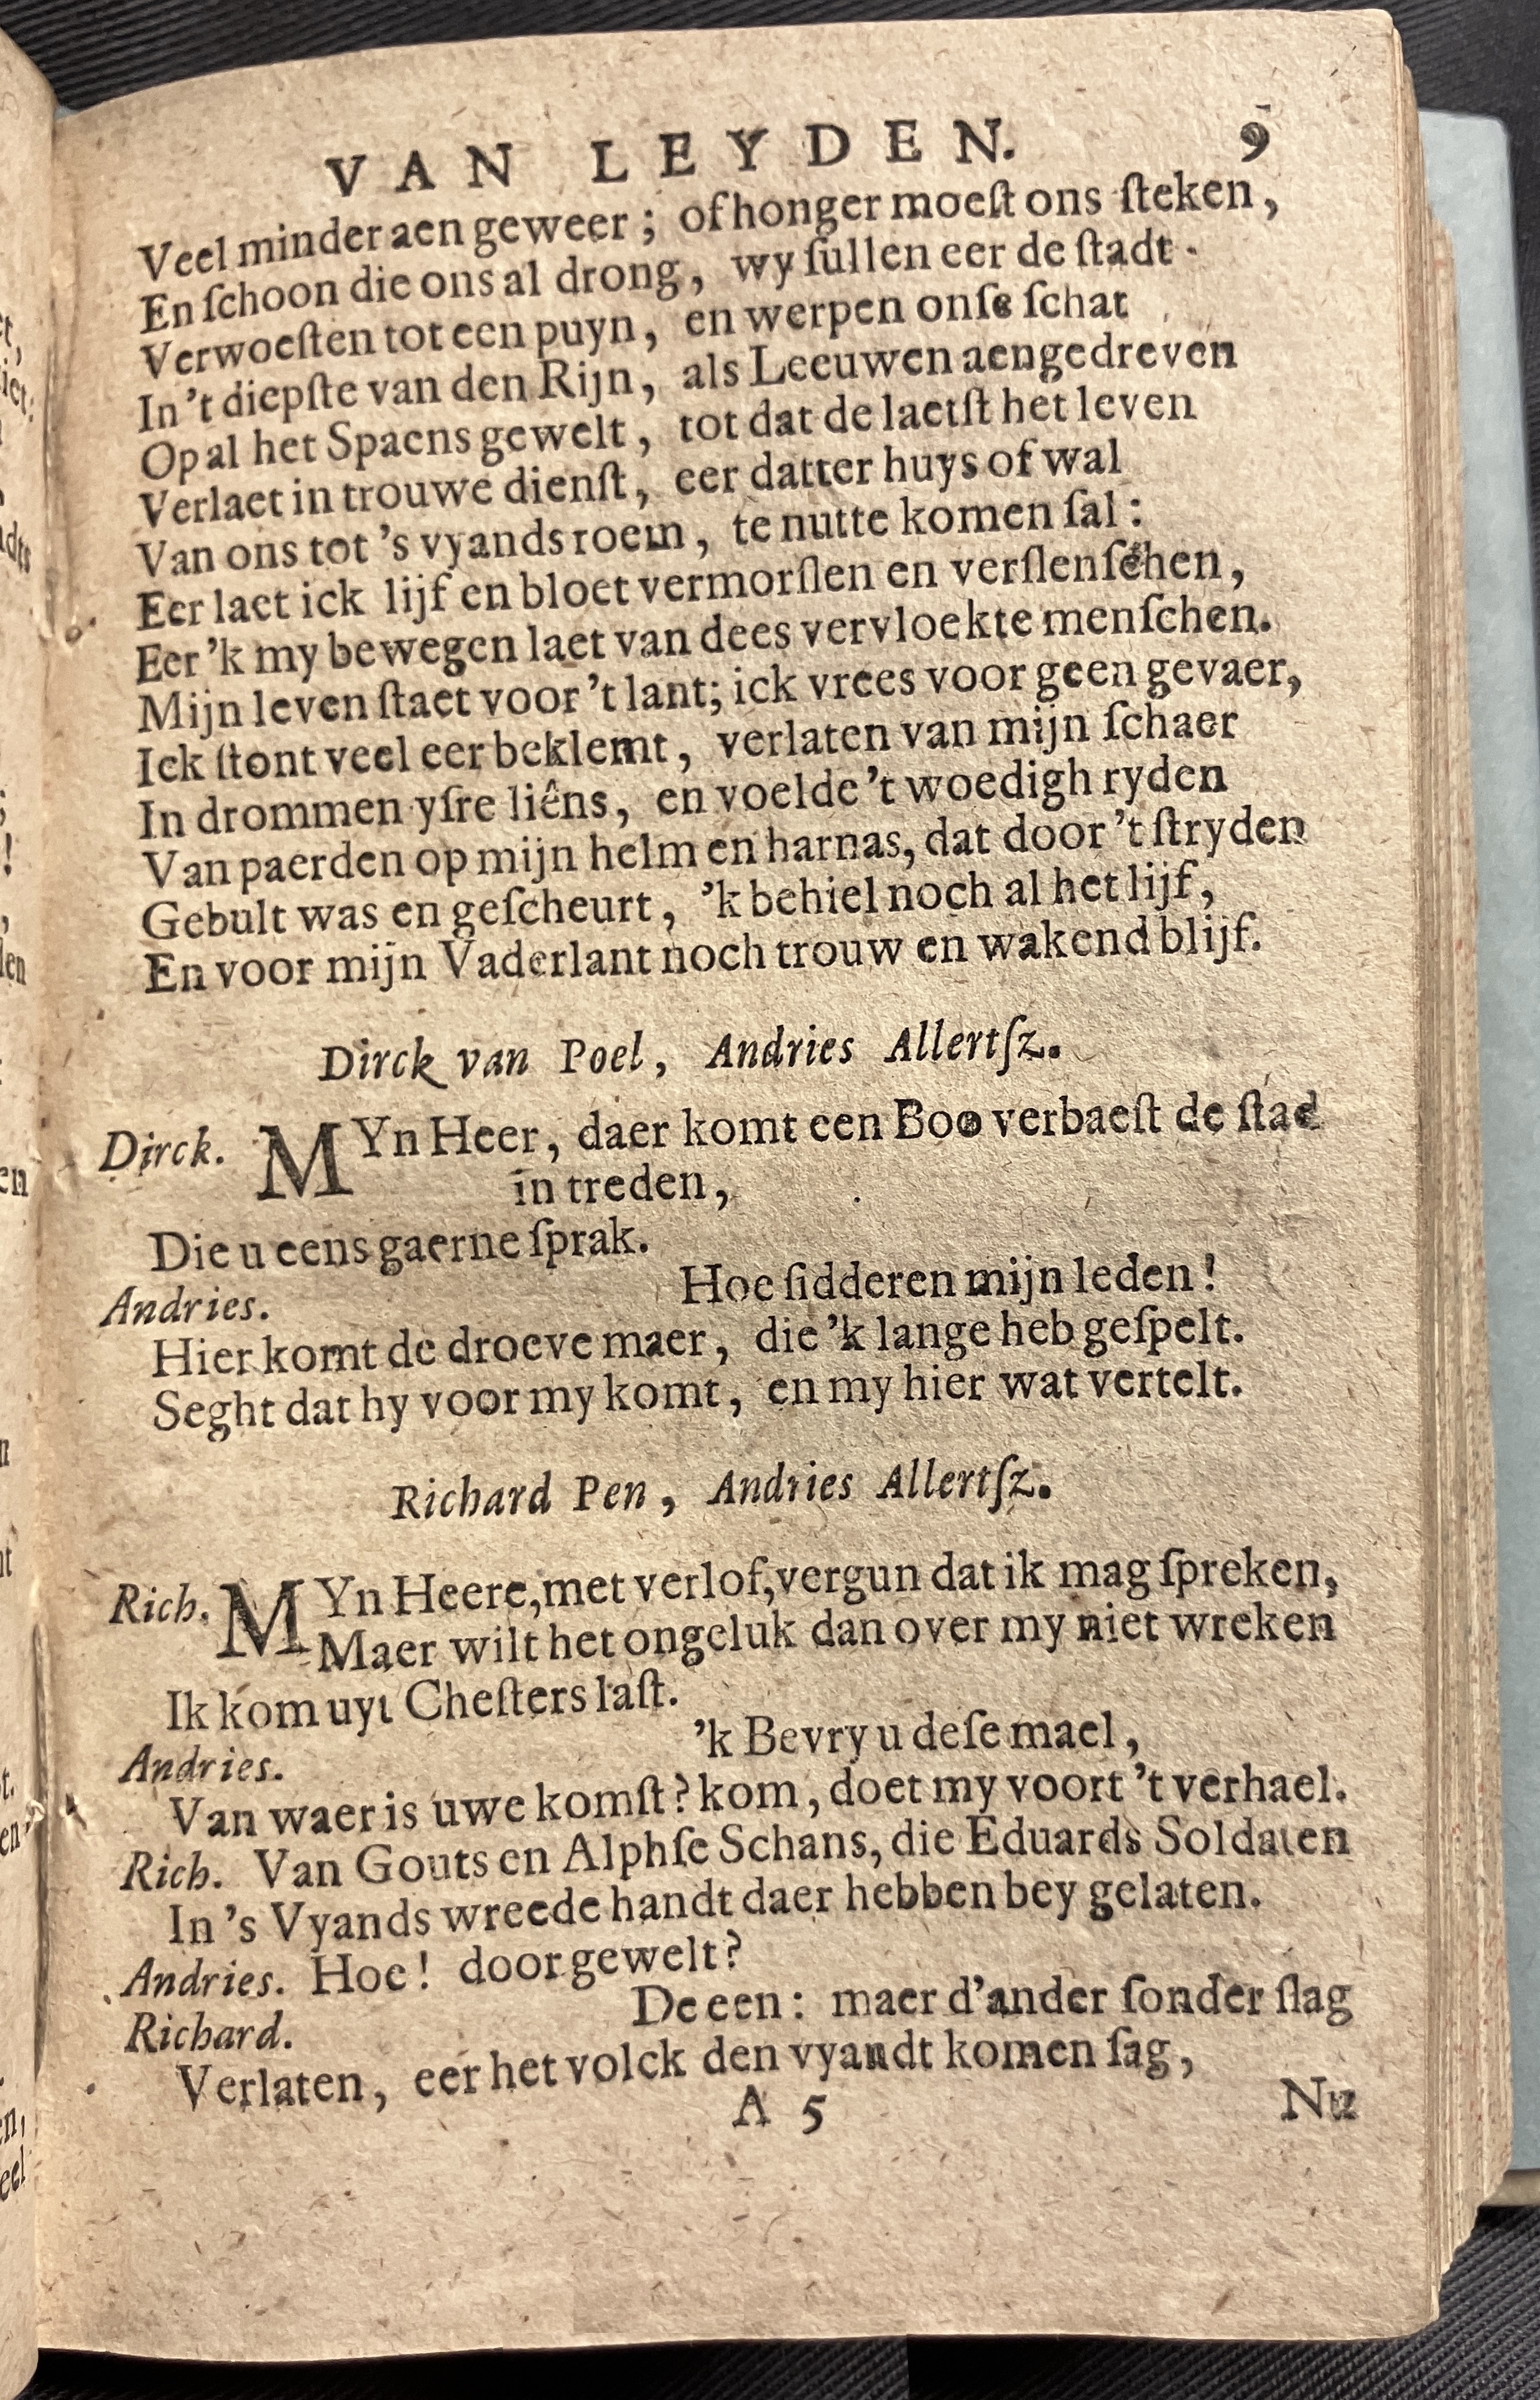 VAN LEYDEN. 9
Veel minder aen geweer; of honger moeſt ons ſteken,
En ſchoon die ons al drong, wy ſullen eer de ſtadt
Verwoeſten tot een puyn, en werpen onſe ſchat
In 't diepſte van den Rijn, als Leeuwen aengedreven
Op al het Spaens gewelt, tot dat de laetſt het leven
Verlaet in trouwe dienſt, eer datter huys of wal
Van ons tot 's vyands roem, te nutte komen ſal:
Eer laet ick lijf en bloet vermorſlen en verſlenſchen,
Eer 'k my bewegen laet van dees vervloekte menſchen.
Mijn leven ſtaet voor 't lant; ick vrees voor geen gevaer,
Ick ſtont veel eer beklemt, verlaten van mijn ſchaer
In drommen yſre liêns, en voelde 't woedigh ryden
Van paerden op mijn helm en harnas, dat door 't ſtryden
Gebult was en geſcheurt, 'k behiel noch al het lijf,
En voor mijn Vaderlant noch trouw en wakend blijf.
Dirck van Poel, Andries Allertſz.
Dirck. MYn Heer, daer komt een Boo verbaeſt de ſtad
in treden,
Die u eens gaerne ſprak.
Andries. Hoe ſidderen mijn leden!
Hier komt de droeve maer, die 'k lange heb geſpelt.
Seght dat hy voor my komt, en my hier wat vertelt.
Richard Pen, Andries Allertſz.
Rich. MYn Heere, met verlof, vergun dat ik mag ſpreken,
Maer wilt het ongeluk dan over my niet wreken
Ik kom uyt Cheſters laſt.
Andries. 'k Bevry u deſe mael,
Van waer is uwe komſt? kom, doet my voort 't verhael.
Rich. Van Gouts en Alphſe Schans, die Eduards Soldaten
In 's Vyands wreede handt daer hebben bey gelaten.
Andries. Hoe! door gewelt?
Richard. De een: maer d'ander ſonder ſlag
Verlaten, eer het volck den vyandt komen ſag,
A 5 Nu